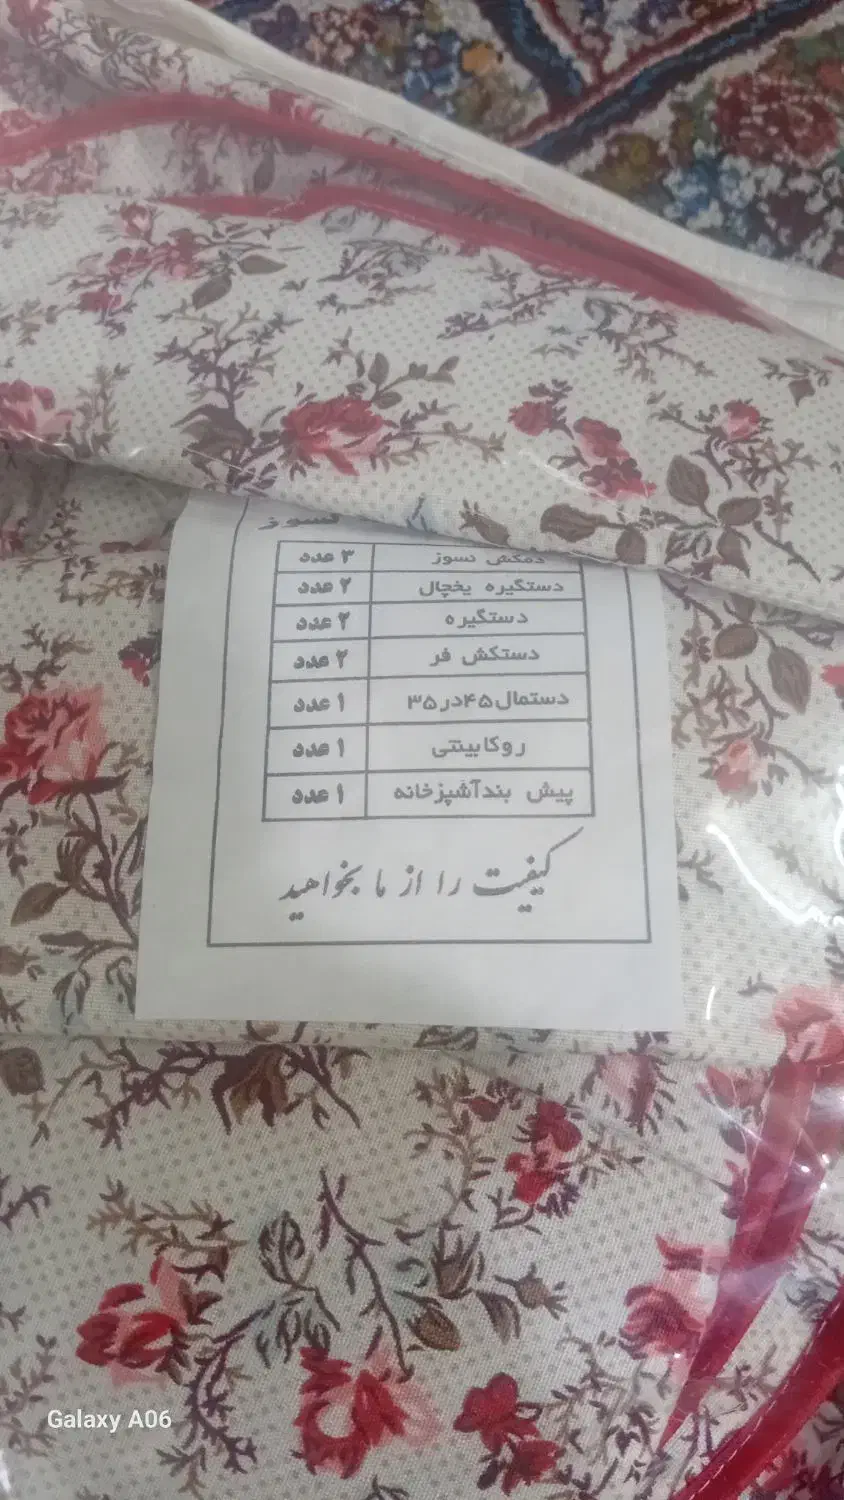 نسوز
دمکش نسوز ۳ عدد
دستگیره یخچال ۲ عدد
دستگیره ۲ عدد
دستکش فر ۲ عدد
دستمال۴۵در۳۵ ۱ عدد
روکابینتی ۱ عدد
پیش بندآشپزخانه ۱ عدد
کیفیت را از ما بخواهید
Galaxy A06